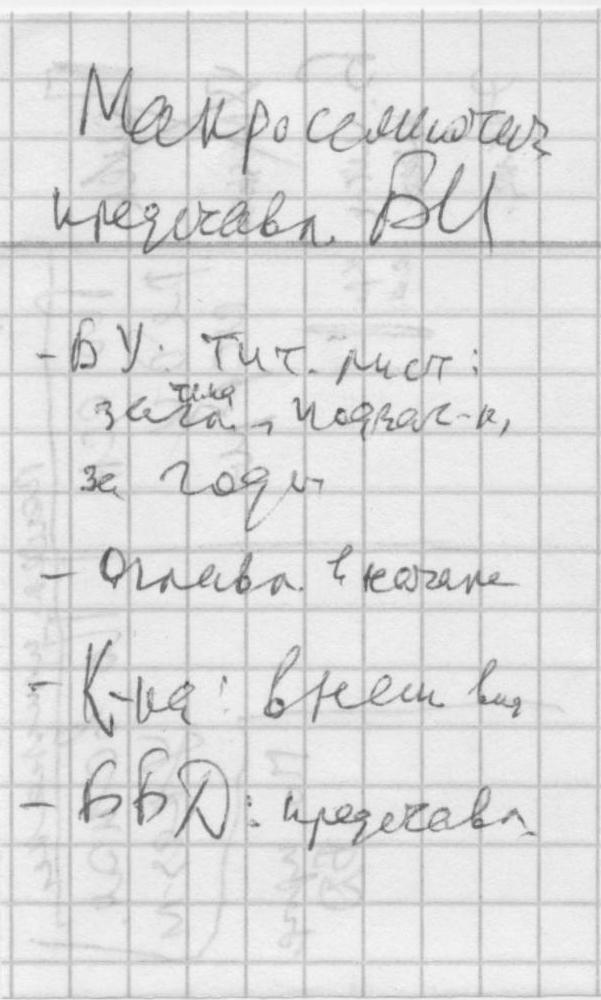 Макросемиотич
представл. БИ
- БУ: тит. лист:
загл., подзаг-к,
за годы
- Оглавл. в начале
- К-ка: внеш вид
- ББД: представл.